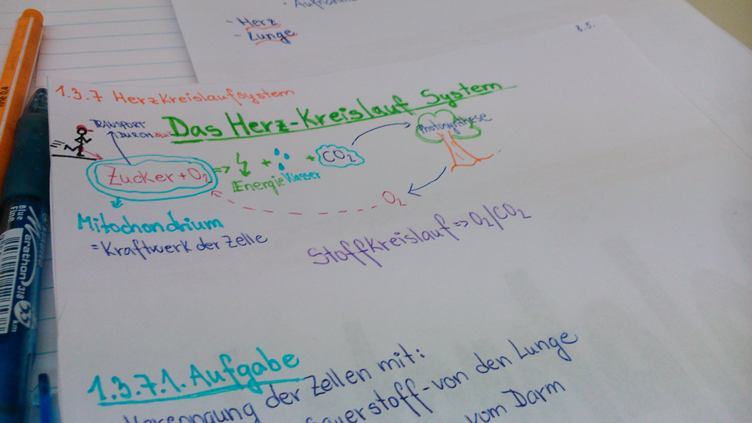 - Herz
- Lunge
1.3.7 Herzkreislaufsystem
Das Herz-Kreislauf System
TRANSPORT
DURCH
Zucker + O₂ => + + CO₂
Energie Wasser
Photosynthese
O₂
Mitochondrium
= Kraftwerk der Zelle
Stoffkreislauf => O₂/CO₂
1.3.7.1. Aufgabe
der Zellen mit:
- von den Lunge
vom Darm
Marathon